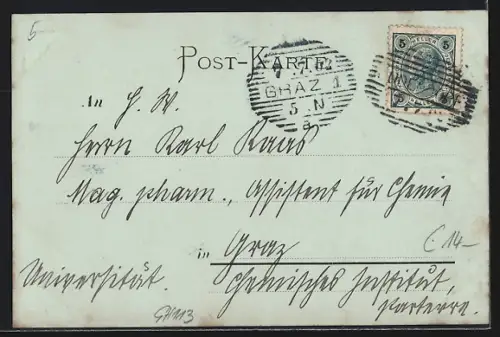 5
Post-Karte
GRAZ 1
5.N
a
5 5
An H. W.
Herrn Karl Kaas
Mag. pharm., Assistent für Chemie
in Graz
€ 14-
Universität.
Chemisches Institut,
Parterre.